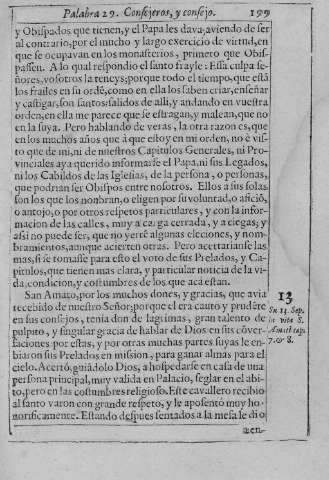 Palabra 29. Consejeros, y consejo. 199
y Obispados que tienen, y el Papa les dava; aviendo de ser
al contrario, por el mucho y largo exercicio de virtud, en
que se ocupavan en los monasterios, primero que Obis-
passen. A lo qual respondio el santo frayle: Essa culpa se-
ñores, vosotros la teneys; porque todo el tiempo, que està
los frailes en su ordẽ, como en ella los saben criar, enseñar
y castigar, son santos: salidos de alli, y andando en vuestra
orden, en ella me parece que se estragan, y malean, que no
en la suya. Pero hablando de veras, la otra razon es, que
en los muchos años que à que estoy en mi orden, no è vis-
to que de mi, ni de nuestros Capitulos Generales, ni Pro-
vinciales aya querido informarse el Papa, ni sus Legados,
ni los Cabildos de las Iglesias, de la persona, o personas,
que podrian ser Obispos entre nosotros. Ellos a sus solas
son los que los nombran, o eligen por su voluntad, o afició,
o antojo, o por otros respetos particulares, y con la infor-
macion de las calles, muy a carga cerrada, y a ciegas; y
assi no puede ser, que no yerrē algunas elecciones, y nom-
bramientos, aunque acierten otras. Pero acertarianse las
mas, si se tomasse para esto el voto de sus Prelados, y Ca-
pitulos, que tienen mas clara, y particular noticia de la vi-
da, condicion, y costumbres de los que acà estan.
San Amato, por los muchos dones, y gracias, que avia 13
recebido de nuestro Señor; porque el era cauto y prudēte Su 13. Sep.
en sus consejos, tenia don de lagrimas, gran talento de in vita S.
pulpito, y singular gracia de hablar de Dios en sus cōver- Amati cap.
saciones; por estas, y por otras muchas partes suyas le en- 7. & 8.
biaron sus Prelados en mission, para ganar almas para el
cielo. Acertò, guiādolo Dios, a hospedarse en casa de una
persona principal, muy valida en Palacio, seglar en el abi-
to, pero en las costumbres religioso. Este cavallero recibio
al santo varon con grande respeto, y le aposentò muy ho-
norificamente. Estando despues sentados a la mesa le dio